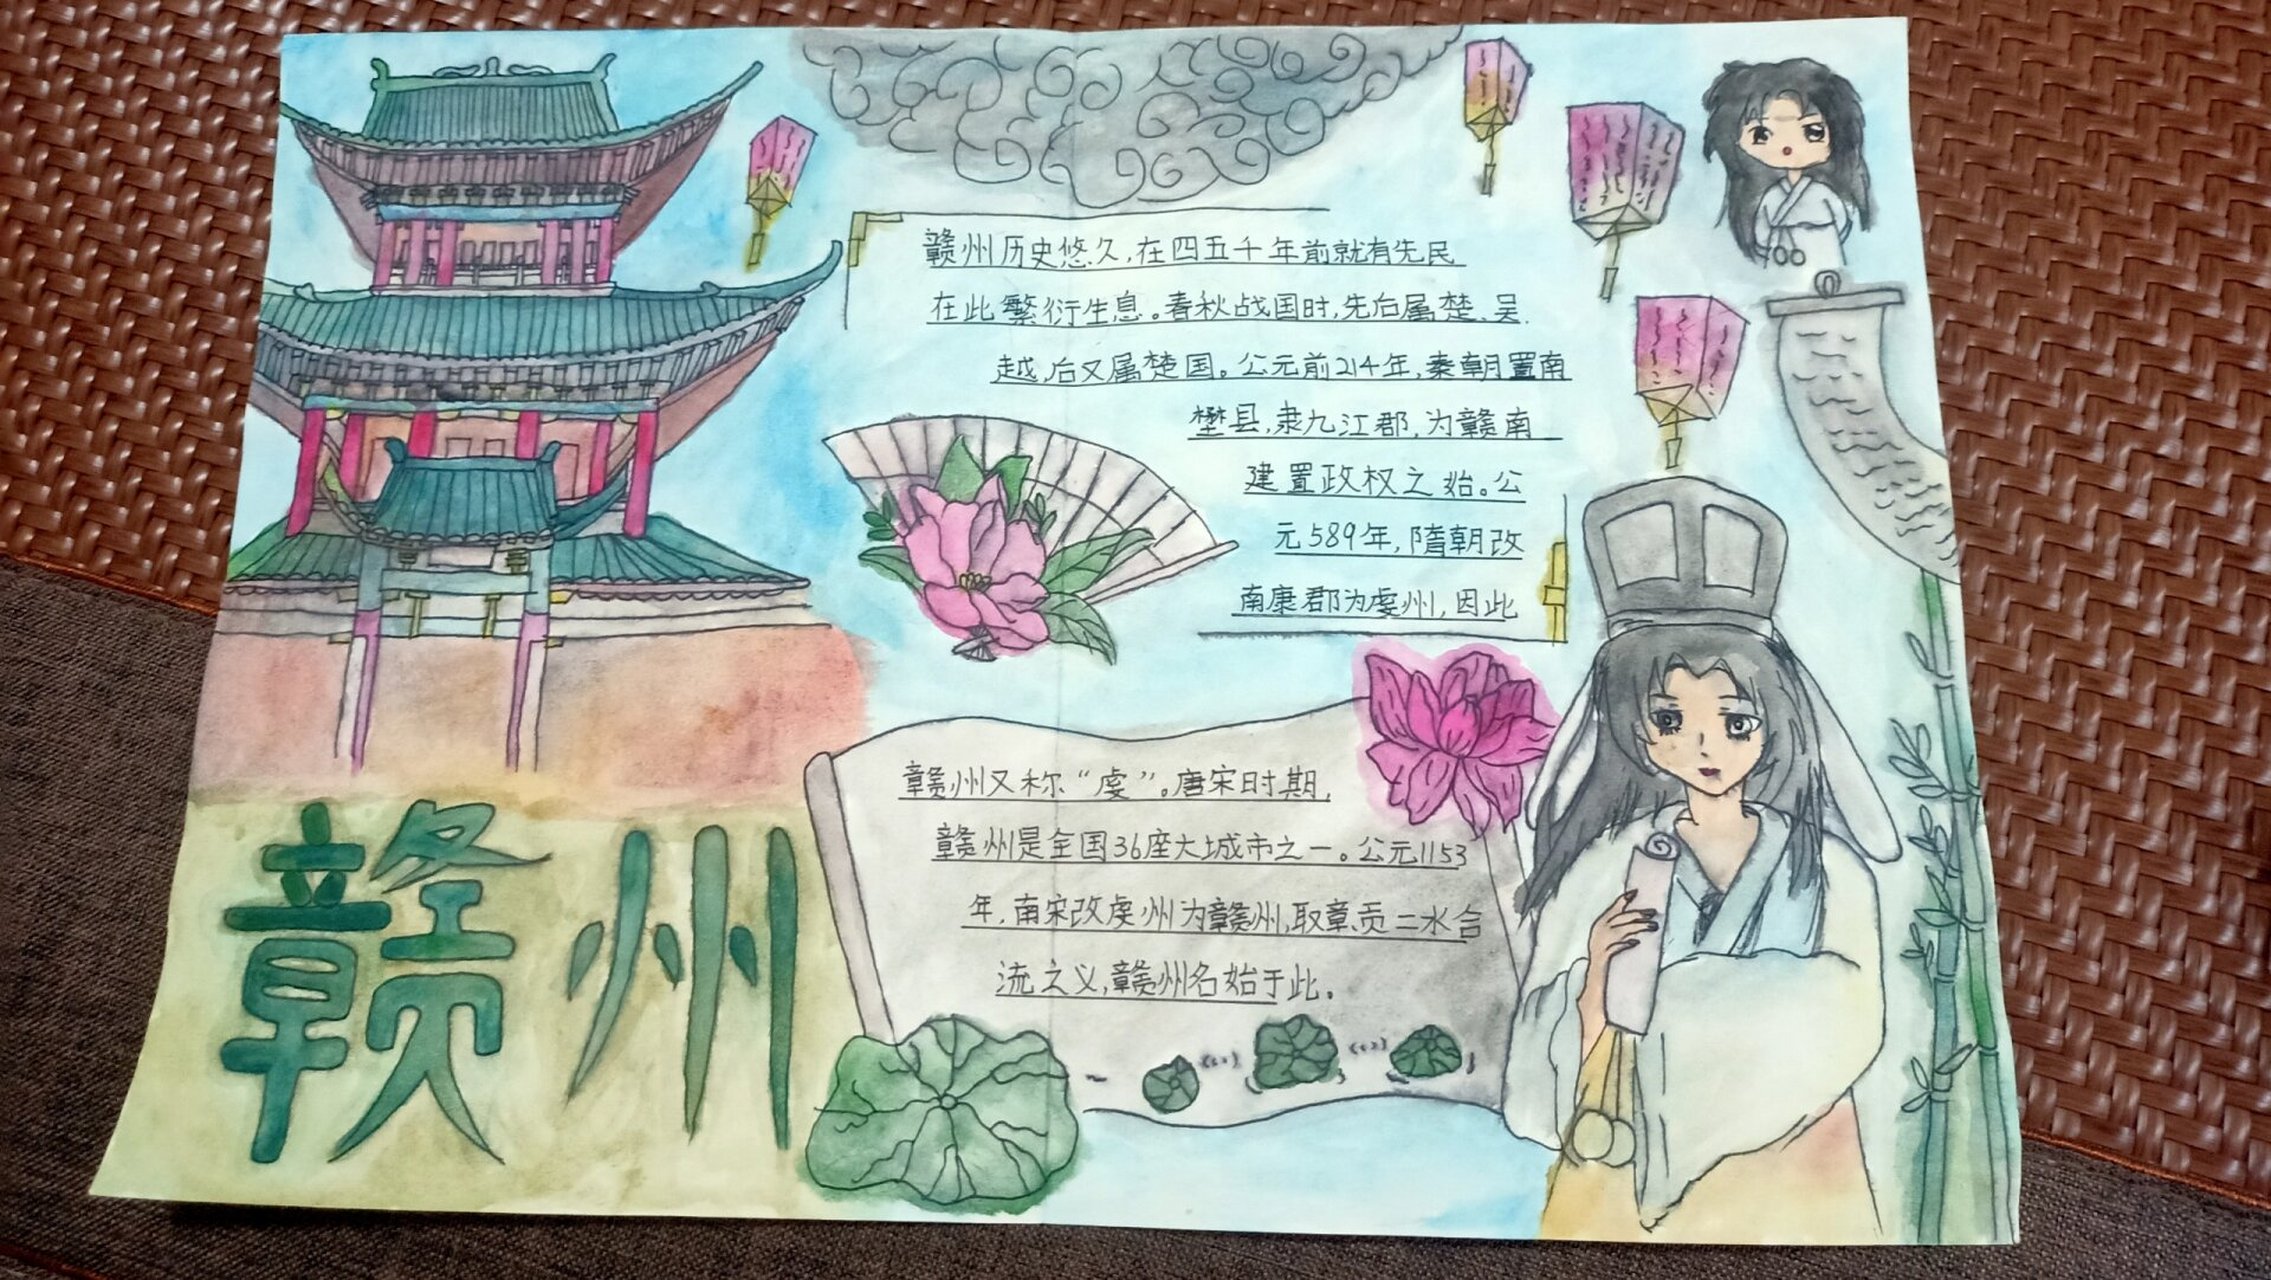 赣州历史悠久,在四五千年前就有先民
在此繁衍生息。春秋战国时,先后属楚、吴、
越,后又属楚国。公元前214年,秦朝置南
壄县,隶九江郡,为赣南
建置政权之始。公
元589年,隋朝改
南康郡为虔州,因此
赣州又称“虔”。唐宋时期,
赣州是全国36座大城市之一。公元1153
年,南宋改虔州为赣州,取章、贡二水合
流之义,赣州名始于此。
赣州